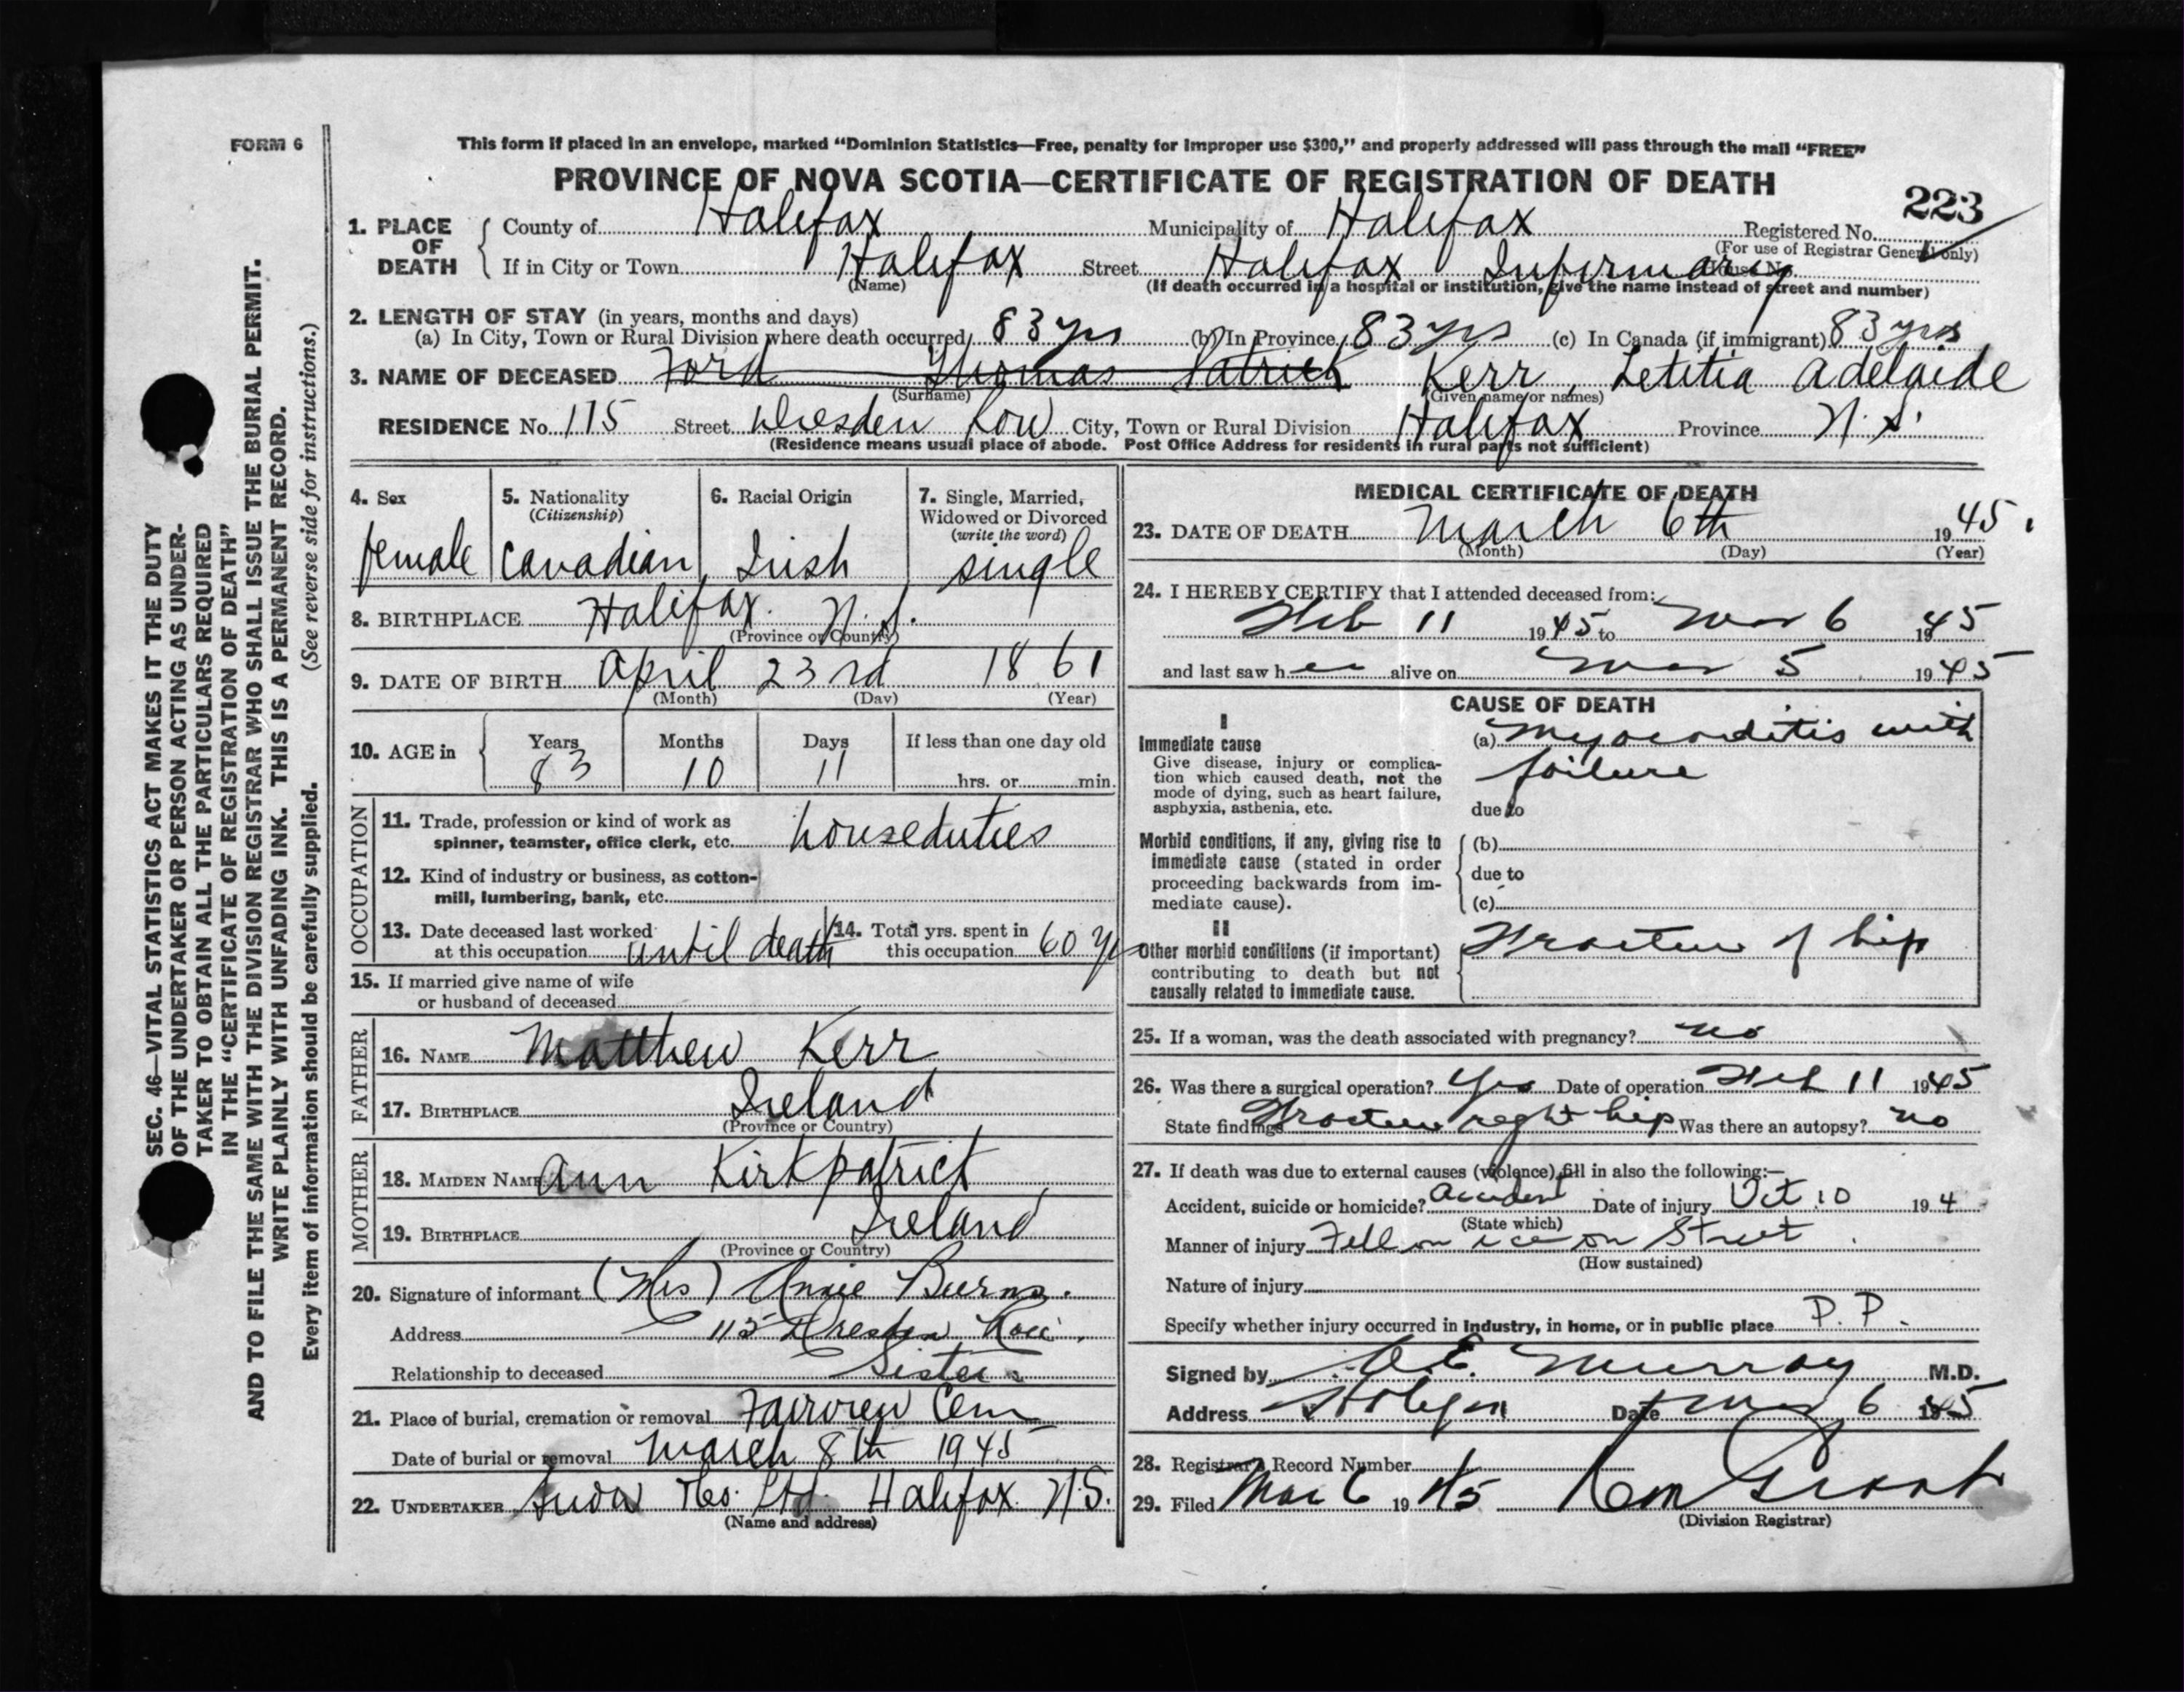 FORM 6
This form if placed in an envelope, marked “Dominion Statistics—Free, penalty for improper use $300,” and properly addressed will pass through the mail “FREE”
PROVINCE OF NOVA SCOTIA—CERTIFICATE OF REGISTRATION OF DEATH
223
1. PLACE OF DEATH { County of Halifax Municipality of Halifax Registered No.
(For use of Registrar General only)
If in City or Town Halifax Street Halifax Infirmary House No.
(Name) (If death occurred in a hospital or institution, give the name instead of street and number)
2. LENGTH OF STAY (in years, months and days)
(a) In City, Town or Rural Division where death occurred 83 yrs (b) In Province 83 yrs (c) In Canada (if immigrant) 83 yrs
3. NAME OF DECEASED Ford Thomas Patrick Kerr, Letitia Adelaide
(Surname) (Given name or names)
RESIDENCE No. 115 Street Dresden Row City, Town or Rural Division Halifax Province N.S.
(Residence means usual place of abode. Post Office Address for residents in rural parts not sufficient)
4. Sex
female
5. Nationality
(Citizenship)
Canadian
6. Racial Origin
Irish
7. Single, Married,
Widowed or Divorced
(write the word)
single
8. BIRTHPLACE Halifax. N.S.
(Province or Country)
9. DATE OF BIRTH April 23rd 1861
(Month) (Day) (Year)
10. AGE in { Years Months Days If less than one day old
83 10 11 hrs. or min.
OCCUPATION
11. Trade, profession or kind of work as
spinner, teamster, office clerk, etc. houseduties
12. Kind of industry or business, as cotton-
mill, lumbering, bank, etc.
13. Date deceased last worked
at this occupation until death
14. Total yrs. spent in
this occupation 60 yrs
15. If married give name of wife
or husband of deceased
FATHER
16. NAME Matthew Kerr
17. BIRTHPLACE Ireland
(Province or Country)
MOTHER
18. MAIDEN NAME Ann Kirkpatrick
19. BIRTHPLACE Ireland
(Province or Country)
20. Signature of informant (Mrs) Annie Burns.
Address 115 Dresden Row.
Relationship to deceased Sister
21. Place of burial, cremation or removal Fairview Cem
Date of burial or removal March 8th 1945
22. UNDERTAKER Snow & Co. Ltd. Halifax N.S.
(Name and address)
MEDICAL CERTIFICATE OF DEATH
23. DATE OF DEATH March 6th 1945.
(Month) (Day) (Year)
24. I HEREBY CERTIFY that I attended deceased from:
Feb 11 1945 to Mar 6 1945
and last saw her alive on Mar 5 1945
CAUSE OF DEATH
I
Immediate cause
Give disease, injury or complica-
tion which caused death, not the
mode of dying, such as heart failure,
asphyxia, asthenia, etc.
(a) Myocarditis with
failure
due to
Morbid conditions, if any, giving rise to
immediate cause (stated in order
proceeding backwards from im-
mediate cause).
(b)
due to
(c)
II
Other morbid conditions (if important)
contributing to death but not
causally related to immediate cause.
Fracture of hip
25. If a woman, was the death associated with pregnancy? no
26. Was there a surgical operation? Yes Date of operation Feb 11 1945
State findings Fracture right hip Was there an autopsy? no
27. If death was due to external causes (violence) fill in also the following:—
Accident, suicide or homicide? accident Date of injury Oct 10 194
(State which)
Manner of injury Fell on ice on Street
(How sustained)
Nature of injury
Specify whether injury occurred in industry, in home, or in public place P.P.
Signed by E. Murray M.D.
Address Halifax Date Mar 6 1945
28. Registrar's Record Number
29. Filed Mar 6 1945 Grant
(Division Registrar)
SEC. 46—VITAL STATISTICS ACT MAKES IT THE DUTY
OF THE UNDERTAKER OR PERSON ACTING AS UNDER-
TAKER TO OBTAIN ALL THE PARTICULARS REQUIRED
IN THE “CERTIFICATE OF REGISTRATION OF DEATH”
AND TO FILE THE SAME WITH THE DIVISION REGISTRAR WHO SHALL ISSUE THE BURIAL PERMIT.
WRITE PLAINLY WITH UNFADING INK. THIS IS A PERMANENT RECORD.
Every item of information should be carefully supplied. (See reverse side for instructions.)